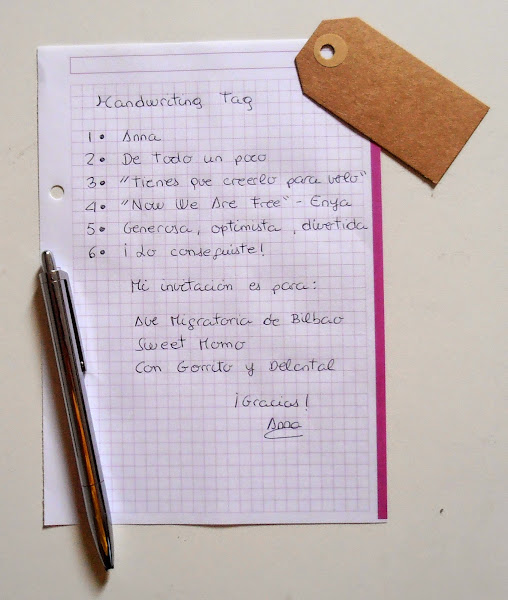 Handwriting Tag
1• Anna
2• De todo un poco
3• "Tienes que creerlo para verlo"
4• "Now We Are Free" - Enya
5• Generosa, optimista, divertida
6• ¡Lo conseguiste!
Mi invitación es para:
Ave Migratoria de Bilbao
Sweet Momo
Con Gorrito y Delantal
¡Gracias!
Anna